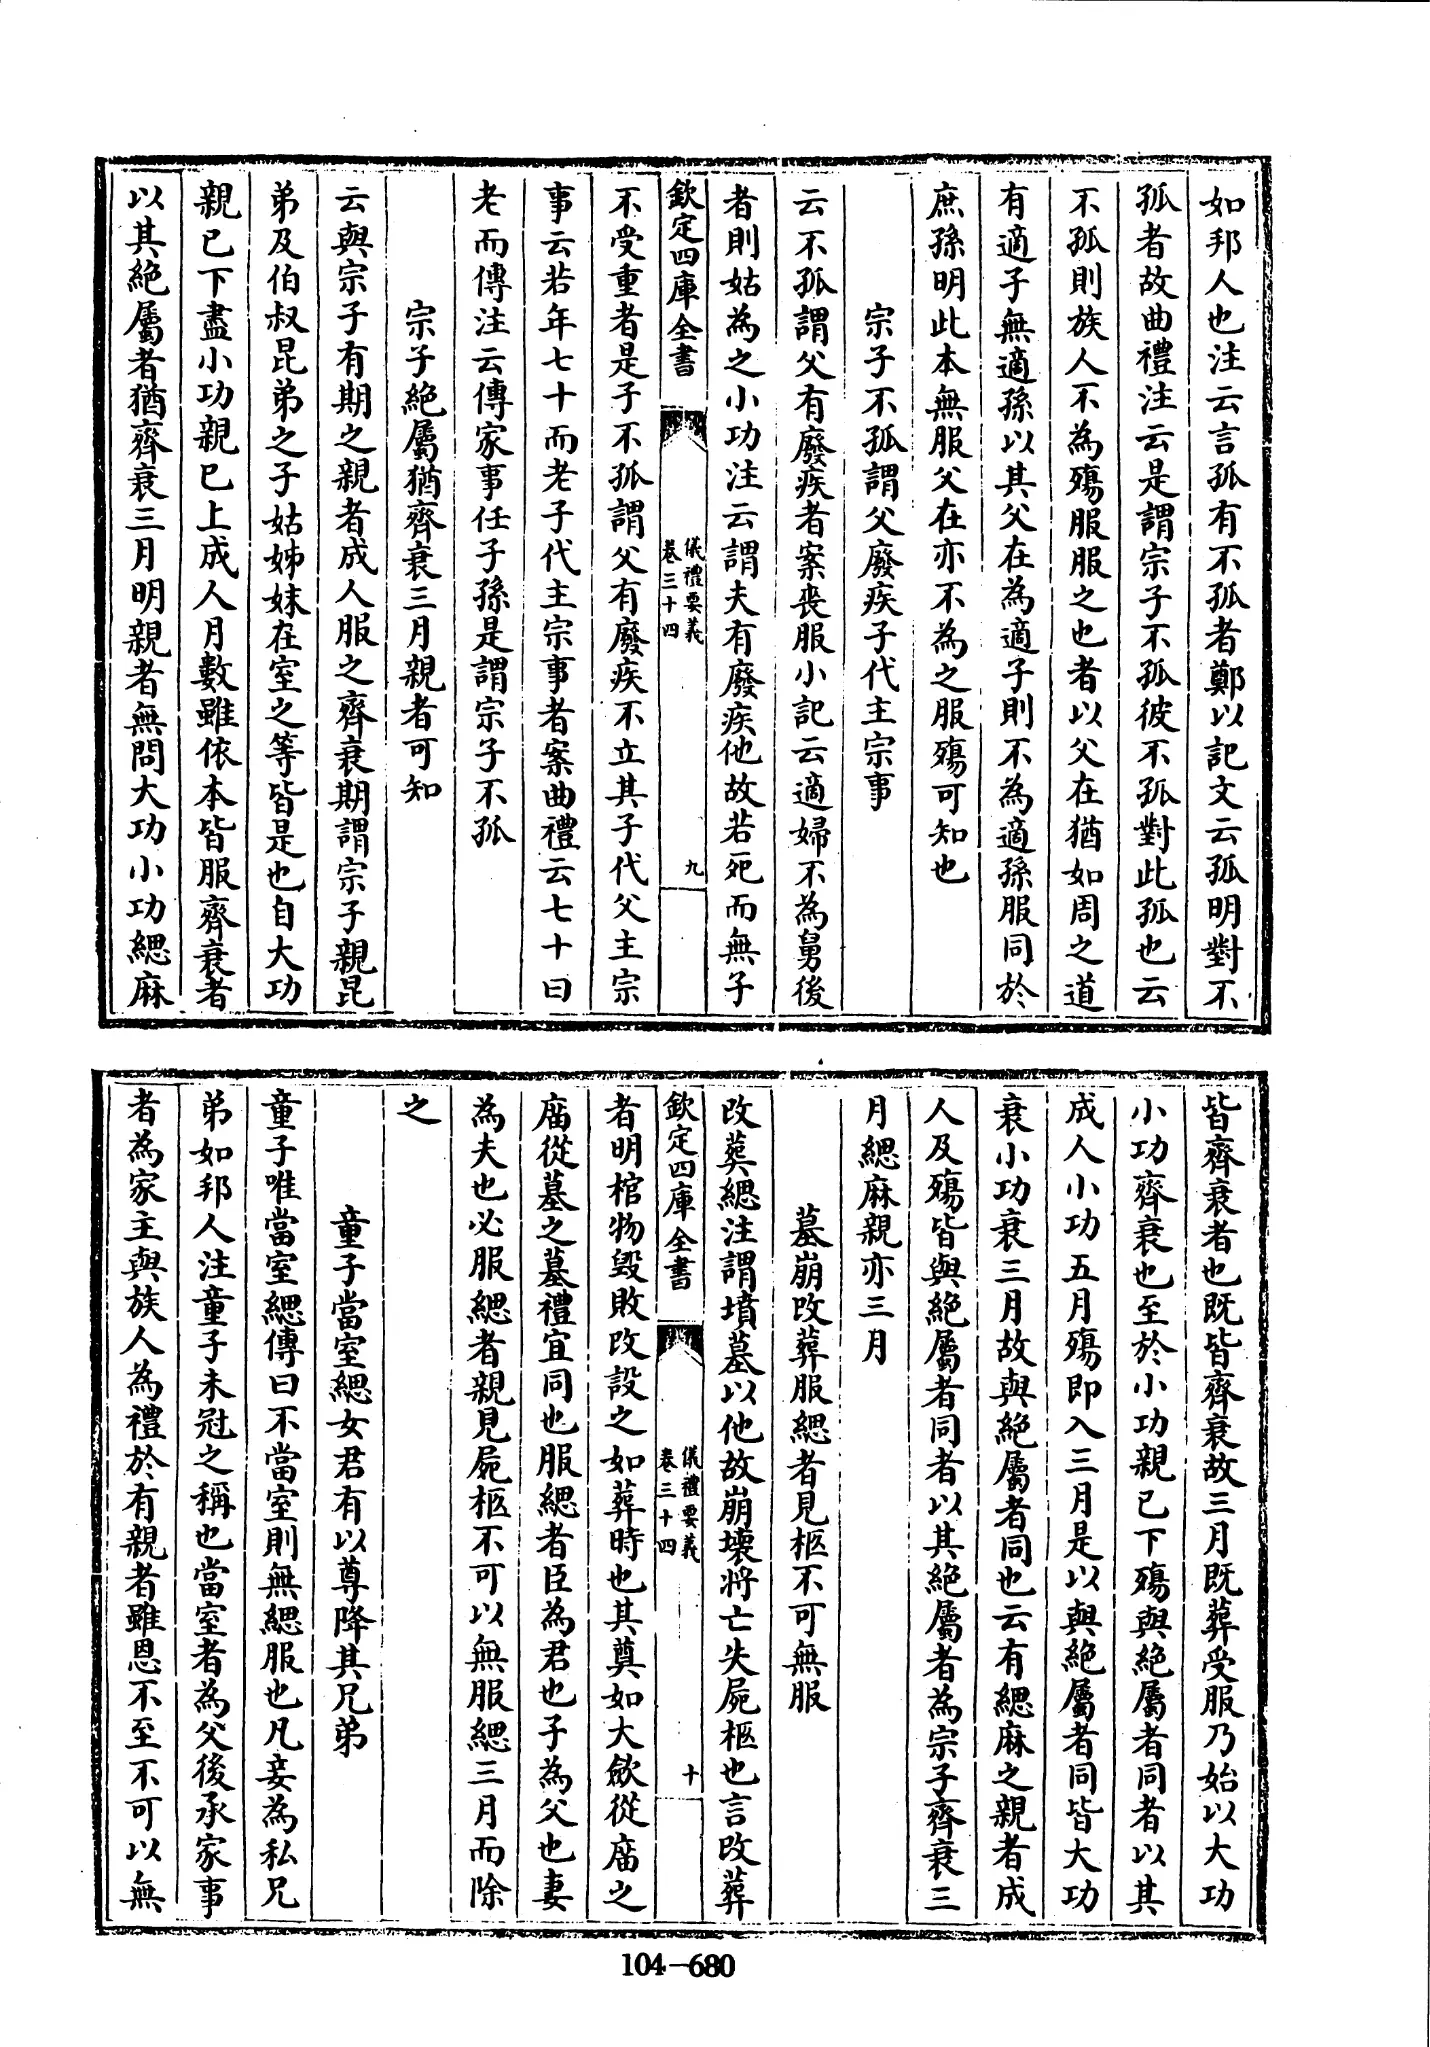 如邦人也注云言孤有不孤者鄭以記文云孤明對不
孤者故曲禮注云是謂宗子不孤彼不孤對此孤也云
不孤則族人不為殤服服之也者以父在猶如周之道
有適子無適孫以其父在為適子則不為適孫服同於
庶孫明此本無服父在亦不為之服殤可知也
宗子不孤謂父廢疾子代主宗事
云不孤謂父有廢疾者案喪服小記云適婦不為舅後
者則姑為之小功注云謂夫有廢疾他故若死而無子
欽定四庫全書
儀禮要義
卷三十四
九
不受重者是子不孤謂父有廢疾不立其子代父主宗
事云若年七十而老子代主宗事者案曲禮云七十曰
老而傳注云傳家事任子孫是謂宗子不孤
宗子絶屬猶齊衰三月親者可知
云與宗子有期之親者成人服之齊衰期謂宗子親昆
弟及伯叔昆弟之子姑姊妹在室之等皆是也自大功
親已下盡小功親已上成人月數雖依本皆服齊衰者
以其絶屬者猶齊衰三月明親者無問大功小功緦麻
皆齊衰者也既皆齊衰故三月既葬受服乃始以大功
小功齊衰也至於小功親已下殤與絶屬者同者以其
成人小功五月殤即入三月是以與絶屬者同皆大功
衰小功衰三月故與絶屬者同也云有緦麻之親者成
人及殤皆與絶屬者同者以其絶屬者為宗子齊衰三
月緦麻親亦三月
墓崩改葬服緦者見柩不可無服
改葬緦注謂墳墓以他故崩壞將亡失屍柩也言改葬
欽定四庫全書
儀禮要義
卷三十四
十
者明棺物毀敗改設之如葬時也其奠如大歛從廟之
廟從墓之墓禮宜同也服緦者臣為君也子為父也妻
為夫也必服緦者親見屍柩不可以無服緦三月而除
之
童子當室緦女君有以尊降其兄弟
童子唯當室緦傳曰不當室則無緦服也凡妾為私兄
弟如邦人注童子未冠之稱也當室者為父後承家事
者為家主與族人為禮於有親者雖恩不至不可以無
104-680